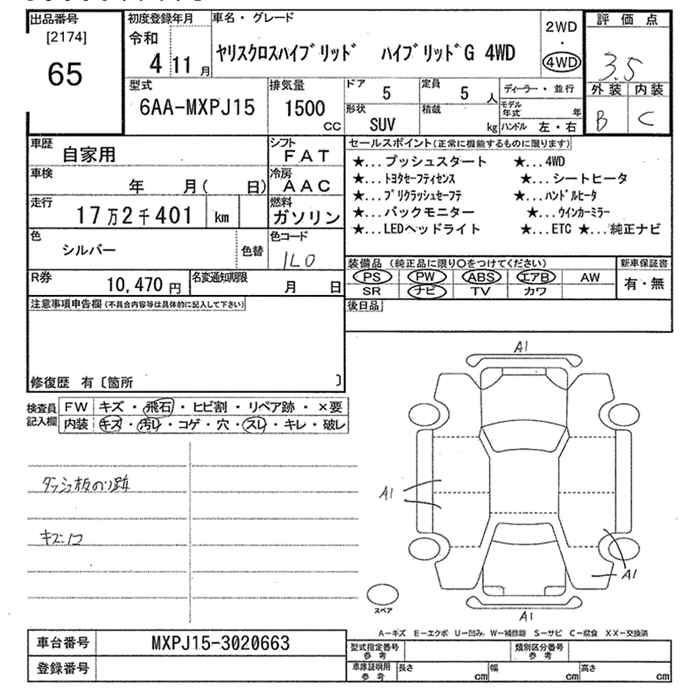 出品番号
[2174]
65
初度登録年月
令和
4 11月
車名・グレード
ヤリスクロスハイブリッド ハイブリッドG 4WD
2WD
・
4WD
評価点
3.5
外装 内装
B C
型式
6AA-MXPJ15
排気量
1500
CC
ドア
5
定員
5 人
形状
SUV
積載
kg
ディーラー・並行
モデル年式 年
ハンドル 左・右
車歴
自家用
シフト
FAT
車検
年 月( 日)
冷房
AAC
走行
17万2千401 km
燃料
ガソリン
色
シルバー
色替
色コード
1L0
R券
10,470円
名変通知期限
月 日
セールスポイント(正常に機能するものに限ります)
★...プッシュスタート ★...4WD
★...トヨタセーフティセンス ★...シートヒータ
★...プリクラッシュセーフテ ★...ハンドルヒータ
★...バックモニター ★...ウインカーミラー
★...LEDヘッドライト ★...ETC ★...純正ナビ
装備品(純正品に限り〇をつけてください)
PS PW ABS エアB AW
SR ナビ TV カワ
新車保証書
有・無
注意事項申告欄(不具合内容等は具体的に記入して下さい)
後日品
修復歴 有〔箇所 〕
検査員記入欄
FW キズ・飛石・ヒビ割・リペア跡・×要
内装 キズ・汚れ・コゲ・穴・スレ・キレ・破レ
ダッシュ板のり跡
キズ・凹
A1
A1
A1
A1
スペア
A―キズ E―エクボ U―凹み W―補修跡 S―サビ C―腐食 XX―交換済
車台番号
MXPJ15-3020663
登録番号
型式指定番号 参考
類別区分番号 参考
車庫証明用 参考
長さ cm 幅 cm 高さ cm